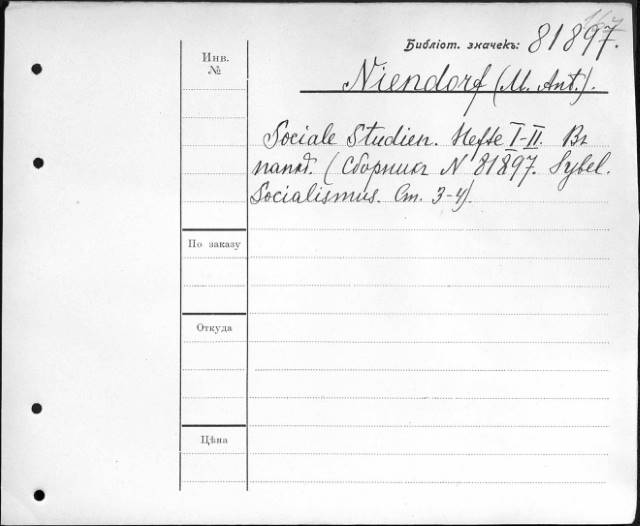 Библіот. значекъ: 81897.
Инв.
№
Niendorf (M. Ant.).
Sociale Studien. Hefte I-II. Въ
папкѣ. (Сборникъ N 81897. Sybel.
Socialismus. Ст. 3-4).
По заказу
Откуда
Цѣна